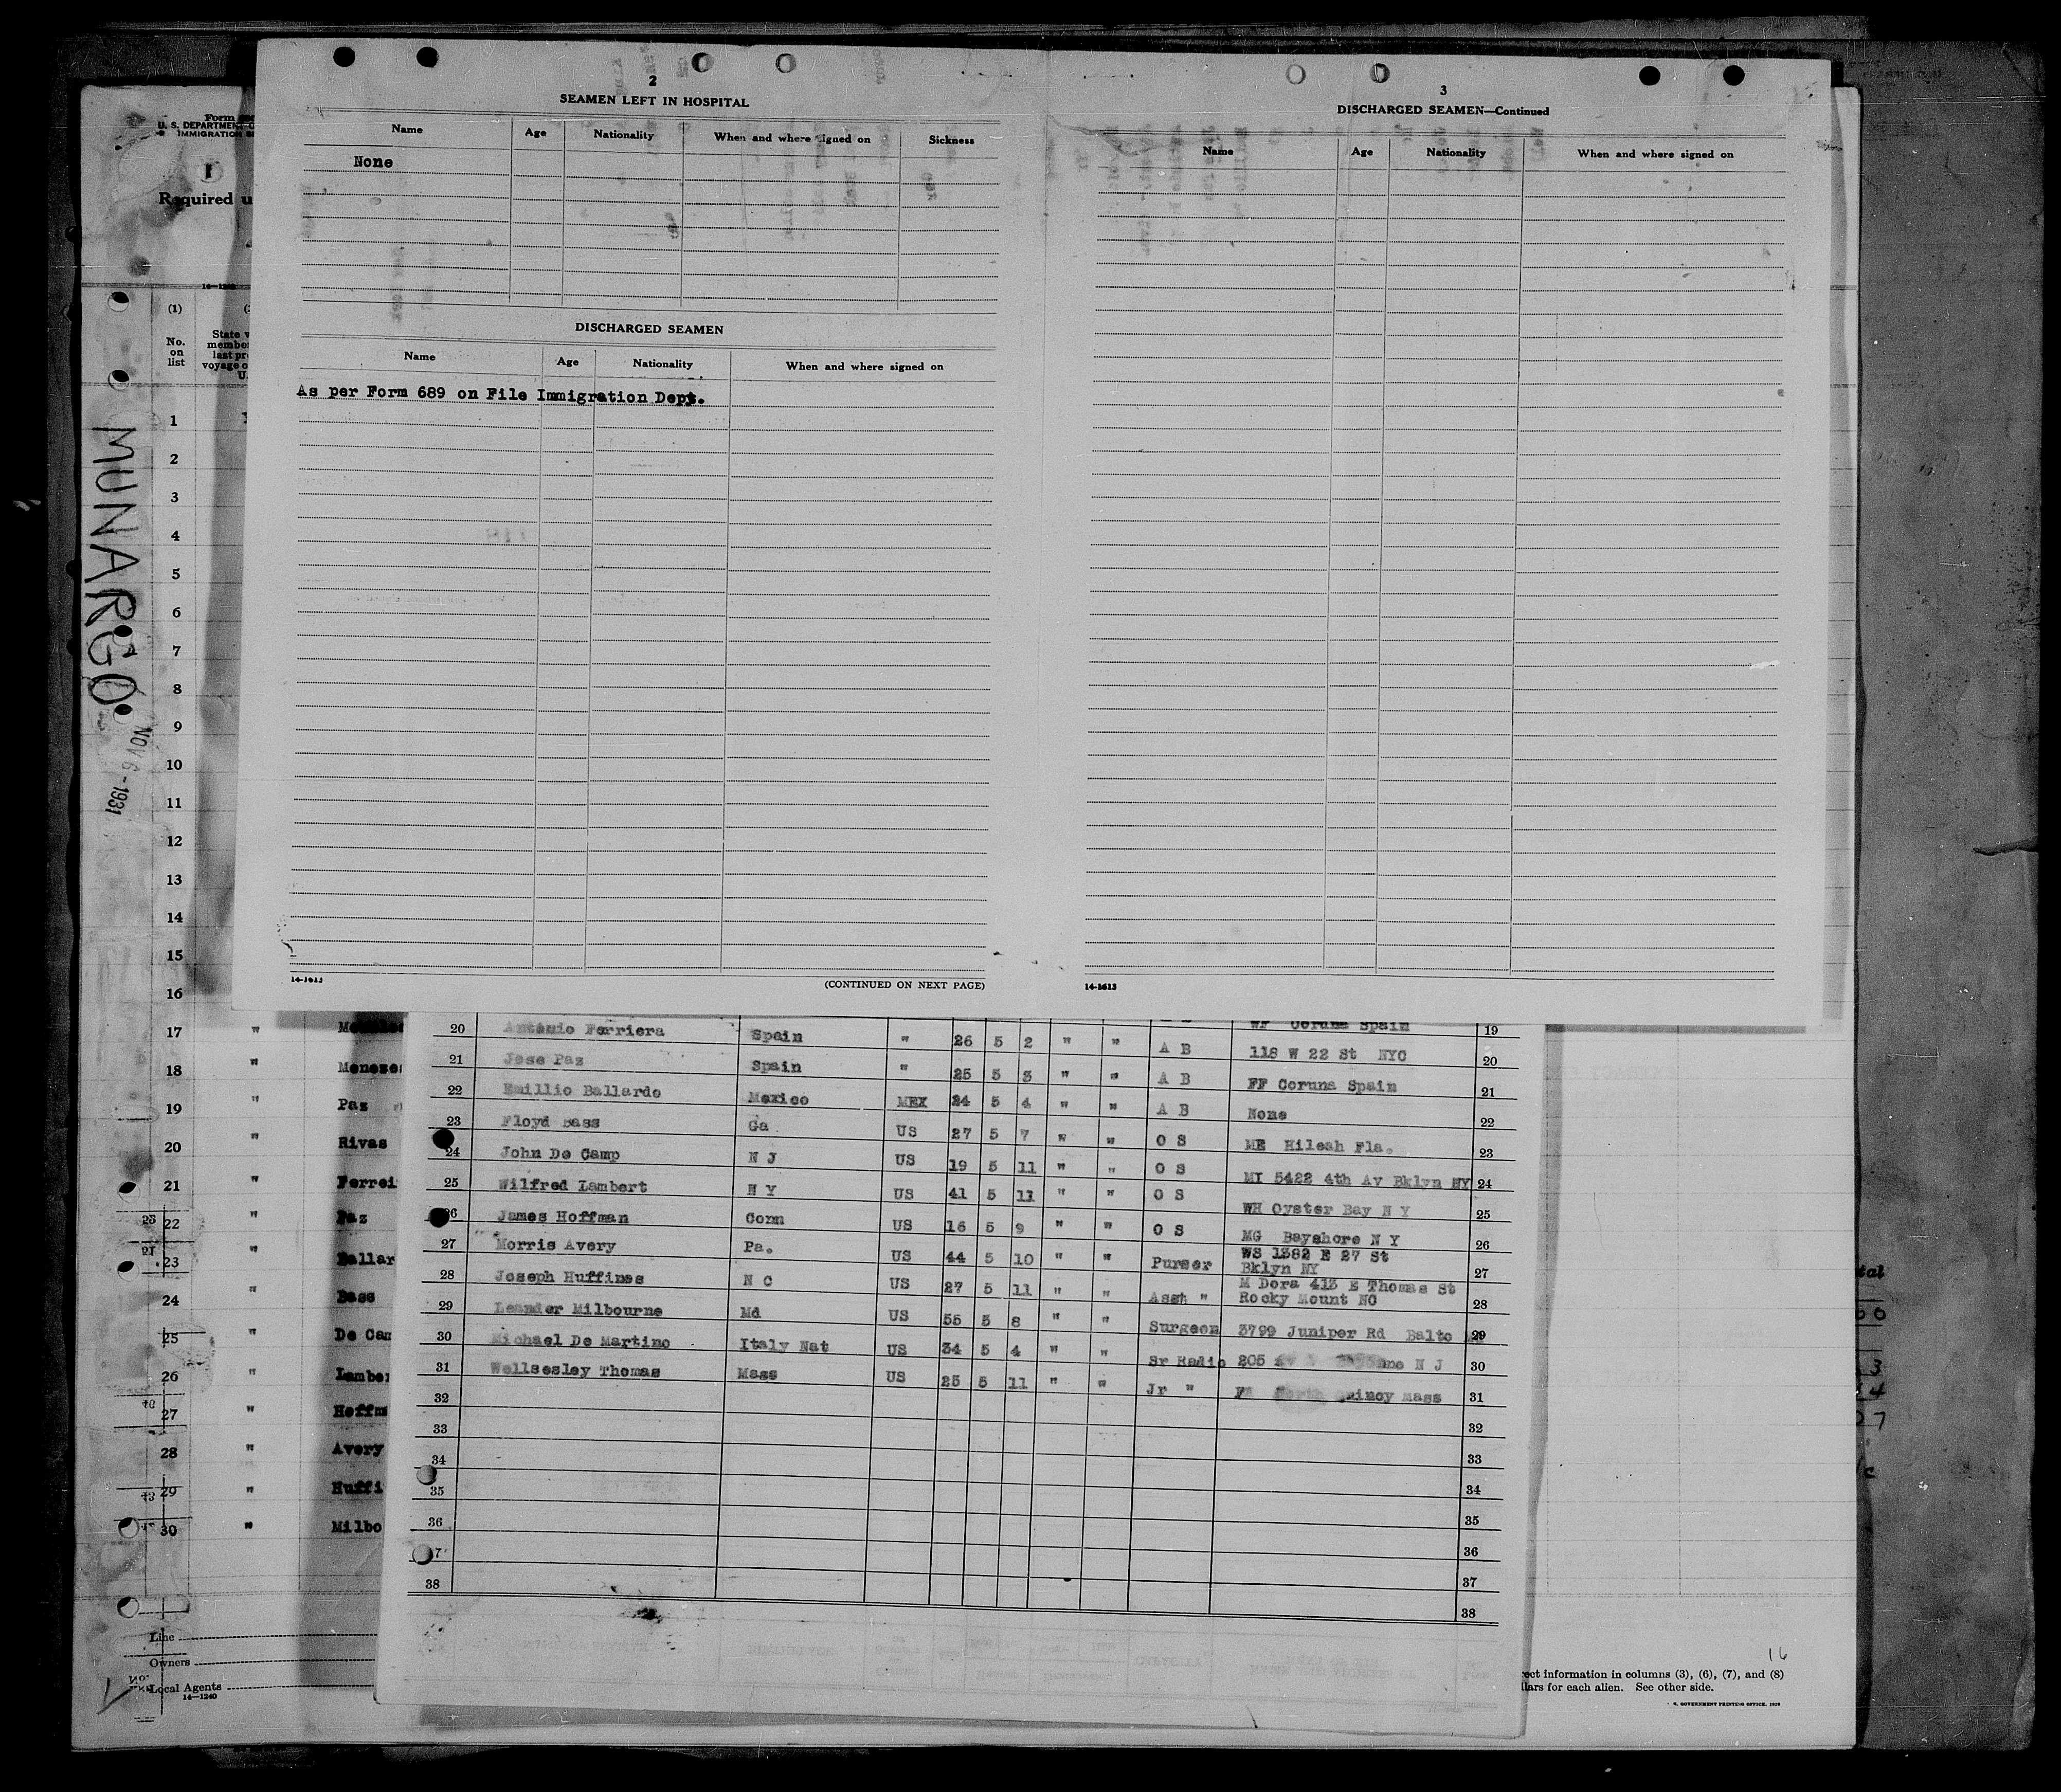 2
SEAMEN LEFT IN HOSPITAL
Name Age Nationality When and where signed on Sickness
None
DISCHARGED SEAMEN
Name Age Nationality When and where signed on
As per Form 689 on File Immigration Dept.
14-1613
(CONTINUED ON NEXT PAGE)
3
DISCHARGED SEAMEN—Continued
Name Age Nationality When and where signed on
14-1613
Form
U. S. DEPARTMENT
IMMIGRATION
Required
(1)
No.
on
list
State
member
last
voyage
U.
MUNARGO
NOV 6 - 1931
1
2
3
4
5
6
7
8
9
10
11
12
13
14
15
16
17 "
18 " Menezes
19 " Paz
20 " Rivas
21 " Ferrei
22 " Paz
23 " Ballar
24 " Bass
25 " De Cam
26 " Lamber
27 " Hoffm
28 " Avery
29 " Huffi
30 " Milbo
Line
Owners
Local Agents
14-1240
WF Coruna Spain 19
20 Antonio Ferriera Spain " 26 5 2 " " A B 118 W 22 St NYC 20
21 Jose Paz Spain " 25 5 3 " " A B FF Coruna Spain 21
22 Emillio Ballardo Mexico MEX 24 5 4 " " A B None 22
23 Floyd Bass Ga US 27 5 7 " " O S ME Hileah Fla. 23
24 John De Camp N J US 19 5 11 " " O S MI 5422 4th Av Bklyn NY 24
25 Wilfred Lambert N Y US 41 5 11 " " O S WH Oyster Bay N Y 25
26 James Hoffman Conn US 16 5 9 " " O S MG Bayshore N Y 26
27 Morris Avery Pa. US 44 5 10 " " Purser WS 1382 E 27 St
Bklyn NY 27
28 Joseph Huffines N C US 27 5 11 " " Asst " M Dora 413 E Thomas St
Rocky Mount NC 28
29 Leander Milbourne Md US 55 5 8 " " Surgeon 3799 Juniper Rd Balto 29
30 Michael De Martino Italy Nat US 34 5 4 " " Sr Radio 205 N J 30
31 Wellsesley Thomas Mass US 25 5 11 " " Jr " North Quincy Mass 31
32 32
33 33
34 34
35 35
36 36
37 37
38 38
16
rect information in columns (3), (6), (7), and (8)
llars for each alien. See other side.
GOVERNMENT PRINTING OFFICE